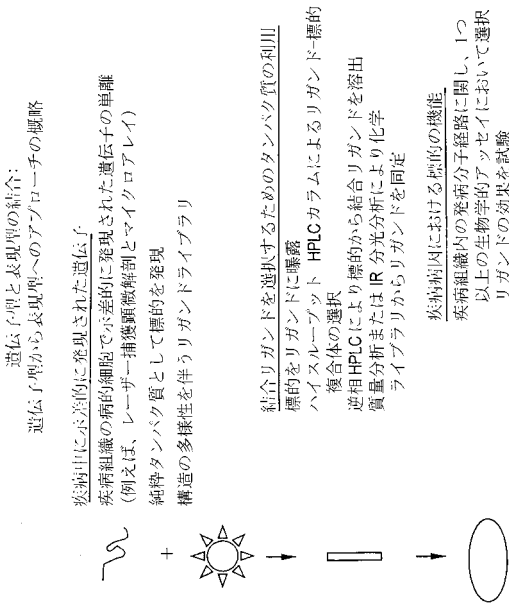 遺伝子型と表現型の結合:
遺伝子型から表現型へのアプローチの概略
疾病中に示差的に発現された遺伝子
疾病組織の病的細胞で示差的に発現された遺伝子の単離
(例えば、レーザー捕獲顕微解剖とマイクロアレイ)
純粋タンパク質として標的を発現
構造の多様性を伴うリガンドライブラリ
+
結合リガンドを選択するためのタンパク質の利用
標的をリガンドに曝露
ハイスループット HPLCカラムによるリガンド-標的
複合体の選択
逆相HPLCにより標的から結合リガンドを溶出
質量分析またはIR分光分析により化学
ライブラリからリガンドを同定
疾病病因における標的の機能
疾病組織内の発病分子経路に関し、1つ
以上の生物学的アッセイにおいて選択
リガンドの効果を試験